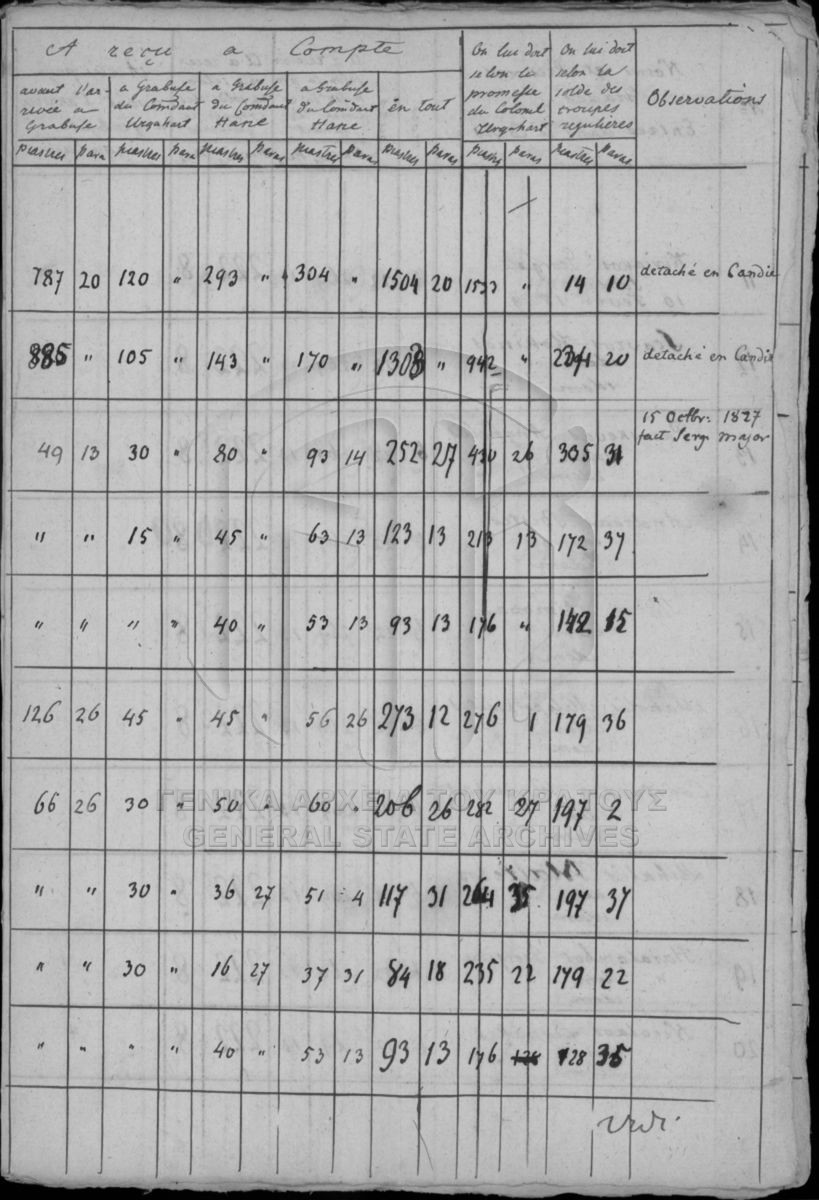 A reçu a Compte
avant l'ar-
rivée a
Grabuse
a Grabuse
du Comdant
Urquhart
a Grabuse
du Comdant
Hane
a Grabuse
du Comdant
Hane
en tout
On lui doit
selon la
promesse
du Colonel
Urquhart
On lui doit
selon la
solde des
troupes
regulieres
Observations
Piastres Para Piastres Para Piastres Paras Piastres Paras Piastres Paras Piastres Paras Piastres Paras
787 20 120 " 293 " 304 " 1504 20 1533 " 14 10 detaché en Candie
885 " 105 " 143 " 170 " 1303 " 942 " 20 detaché en Candie
15 Octbr: 1827
fait Serg. major
49 13 30 " 80 " 93 14 252 27 430 26 305 31
" " 15 " 45 " 63 13 123 13 213 13 172 37
" " " " 40 " 53 13 93 13 176 " 142 15
126 26 45 " 45 " 56 26 273 12 276 1 179 36
66 26 30 " 50 " 60 " 206 26 282 27 197 2
ΓΕΝΙΚΑ ΑΡΧΕΙΑ ΤΟΥ ΚΡΑΤΟΥΣ
GENERAL STATE ARCHIVES
" " 30 " 36 27 51 4 117 31 264 35 197 37
" " 30 " 16 27 37 31 84 18 235 22 179 22
" " " " 40 " 53 13 93 13 176 128 35